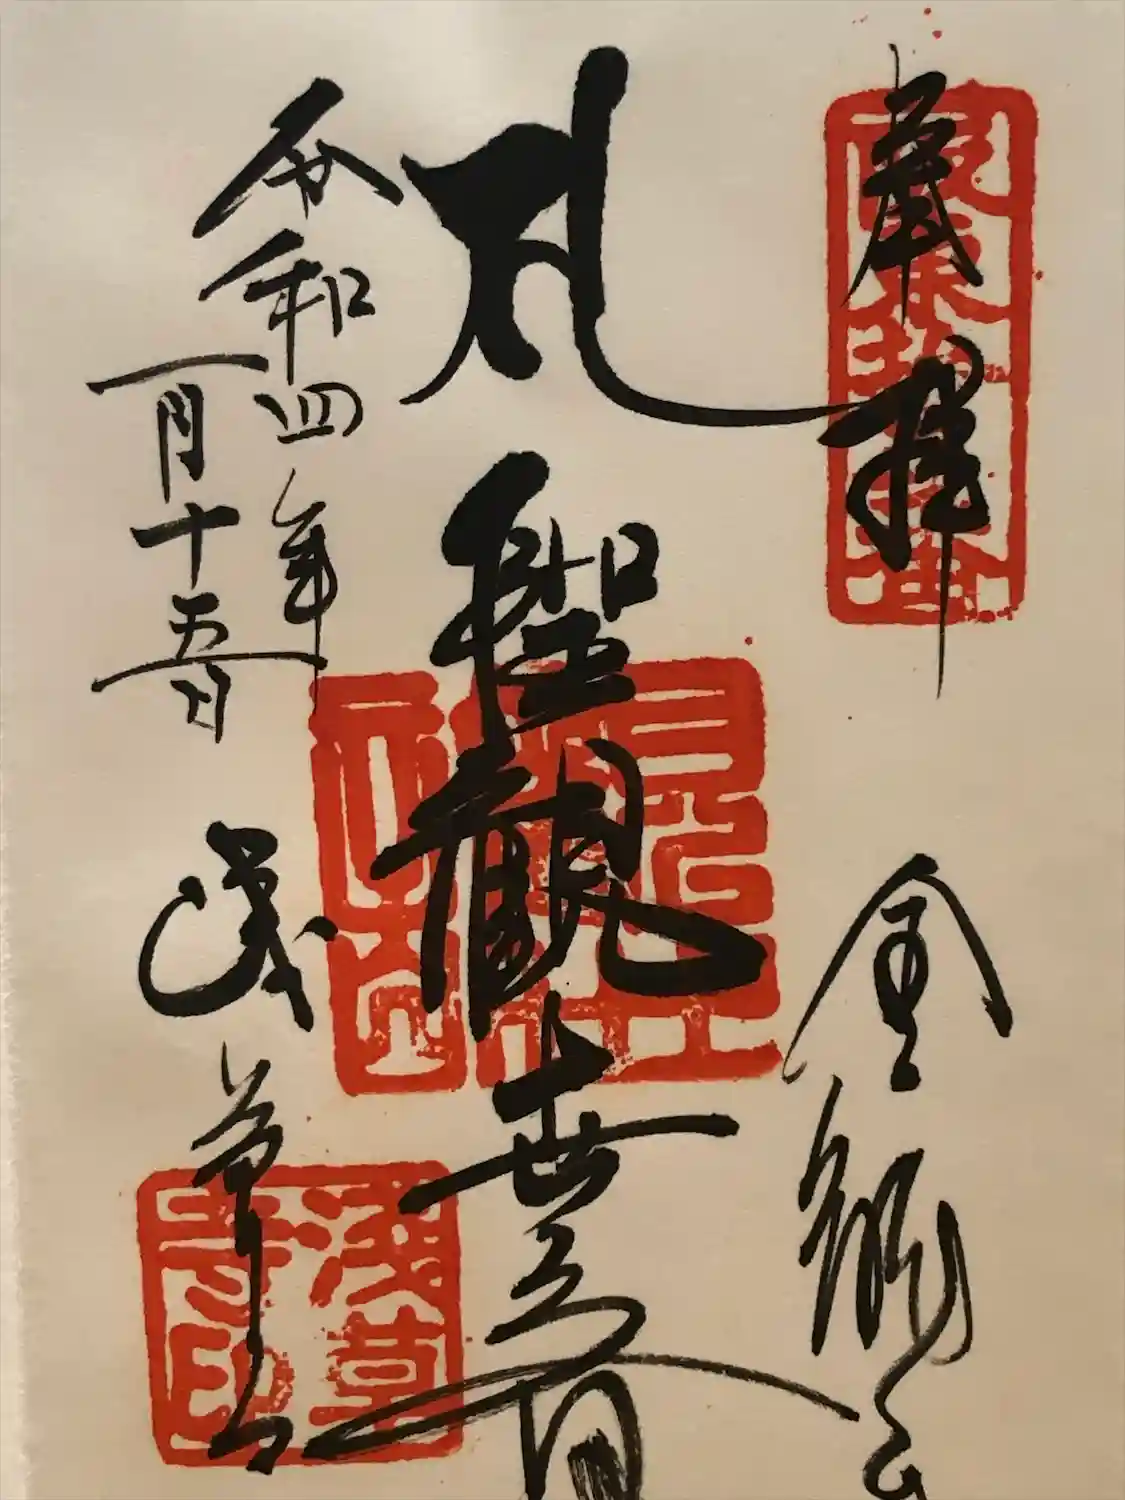 奉拝
坂東拾三番
金龍山
聖観世音
令和四年
一月十五日
浅草寺
浅草寺印